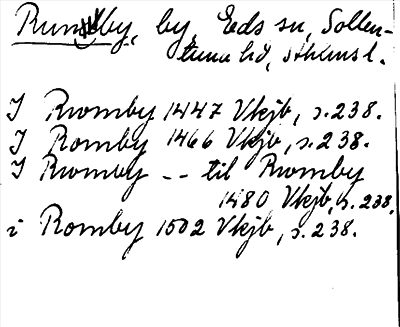 Runsby, by, Eds sn, Sollen-
tuna hd, Sthlms l.
I Rromby 1447 Vkjb, s. 238.
I Romby 1466 Vkjb, s. 238.
I Rromby -- til Rromby
1480 Vkjb, s. 238,
i Romby 1502 Vkjb, s. 238.